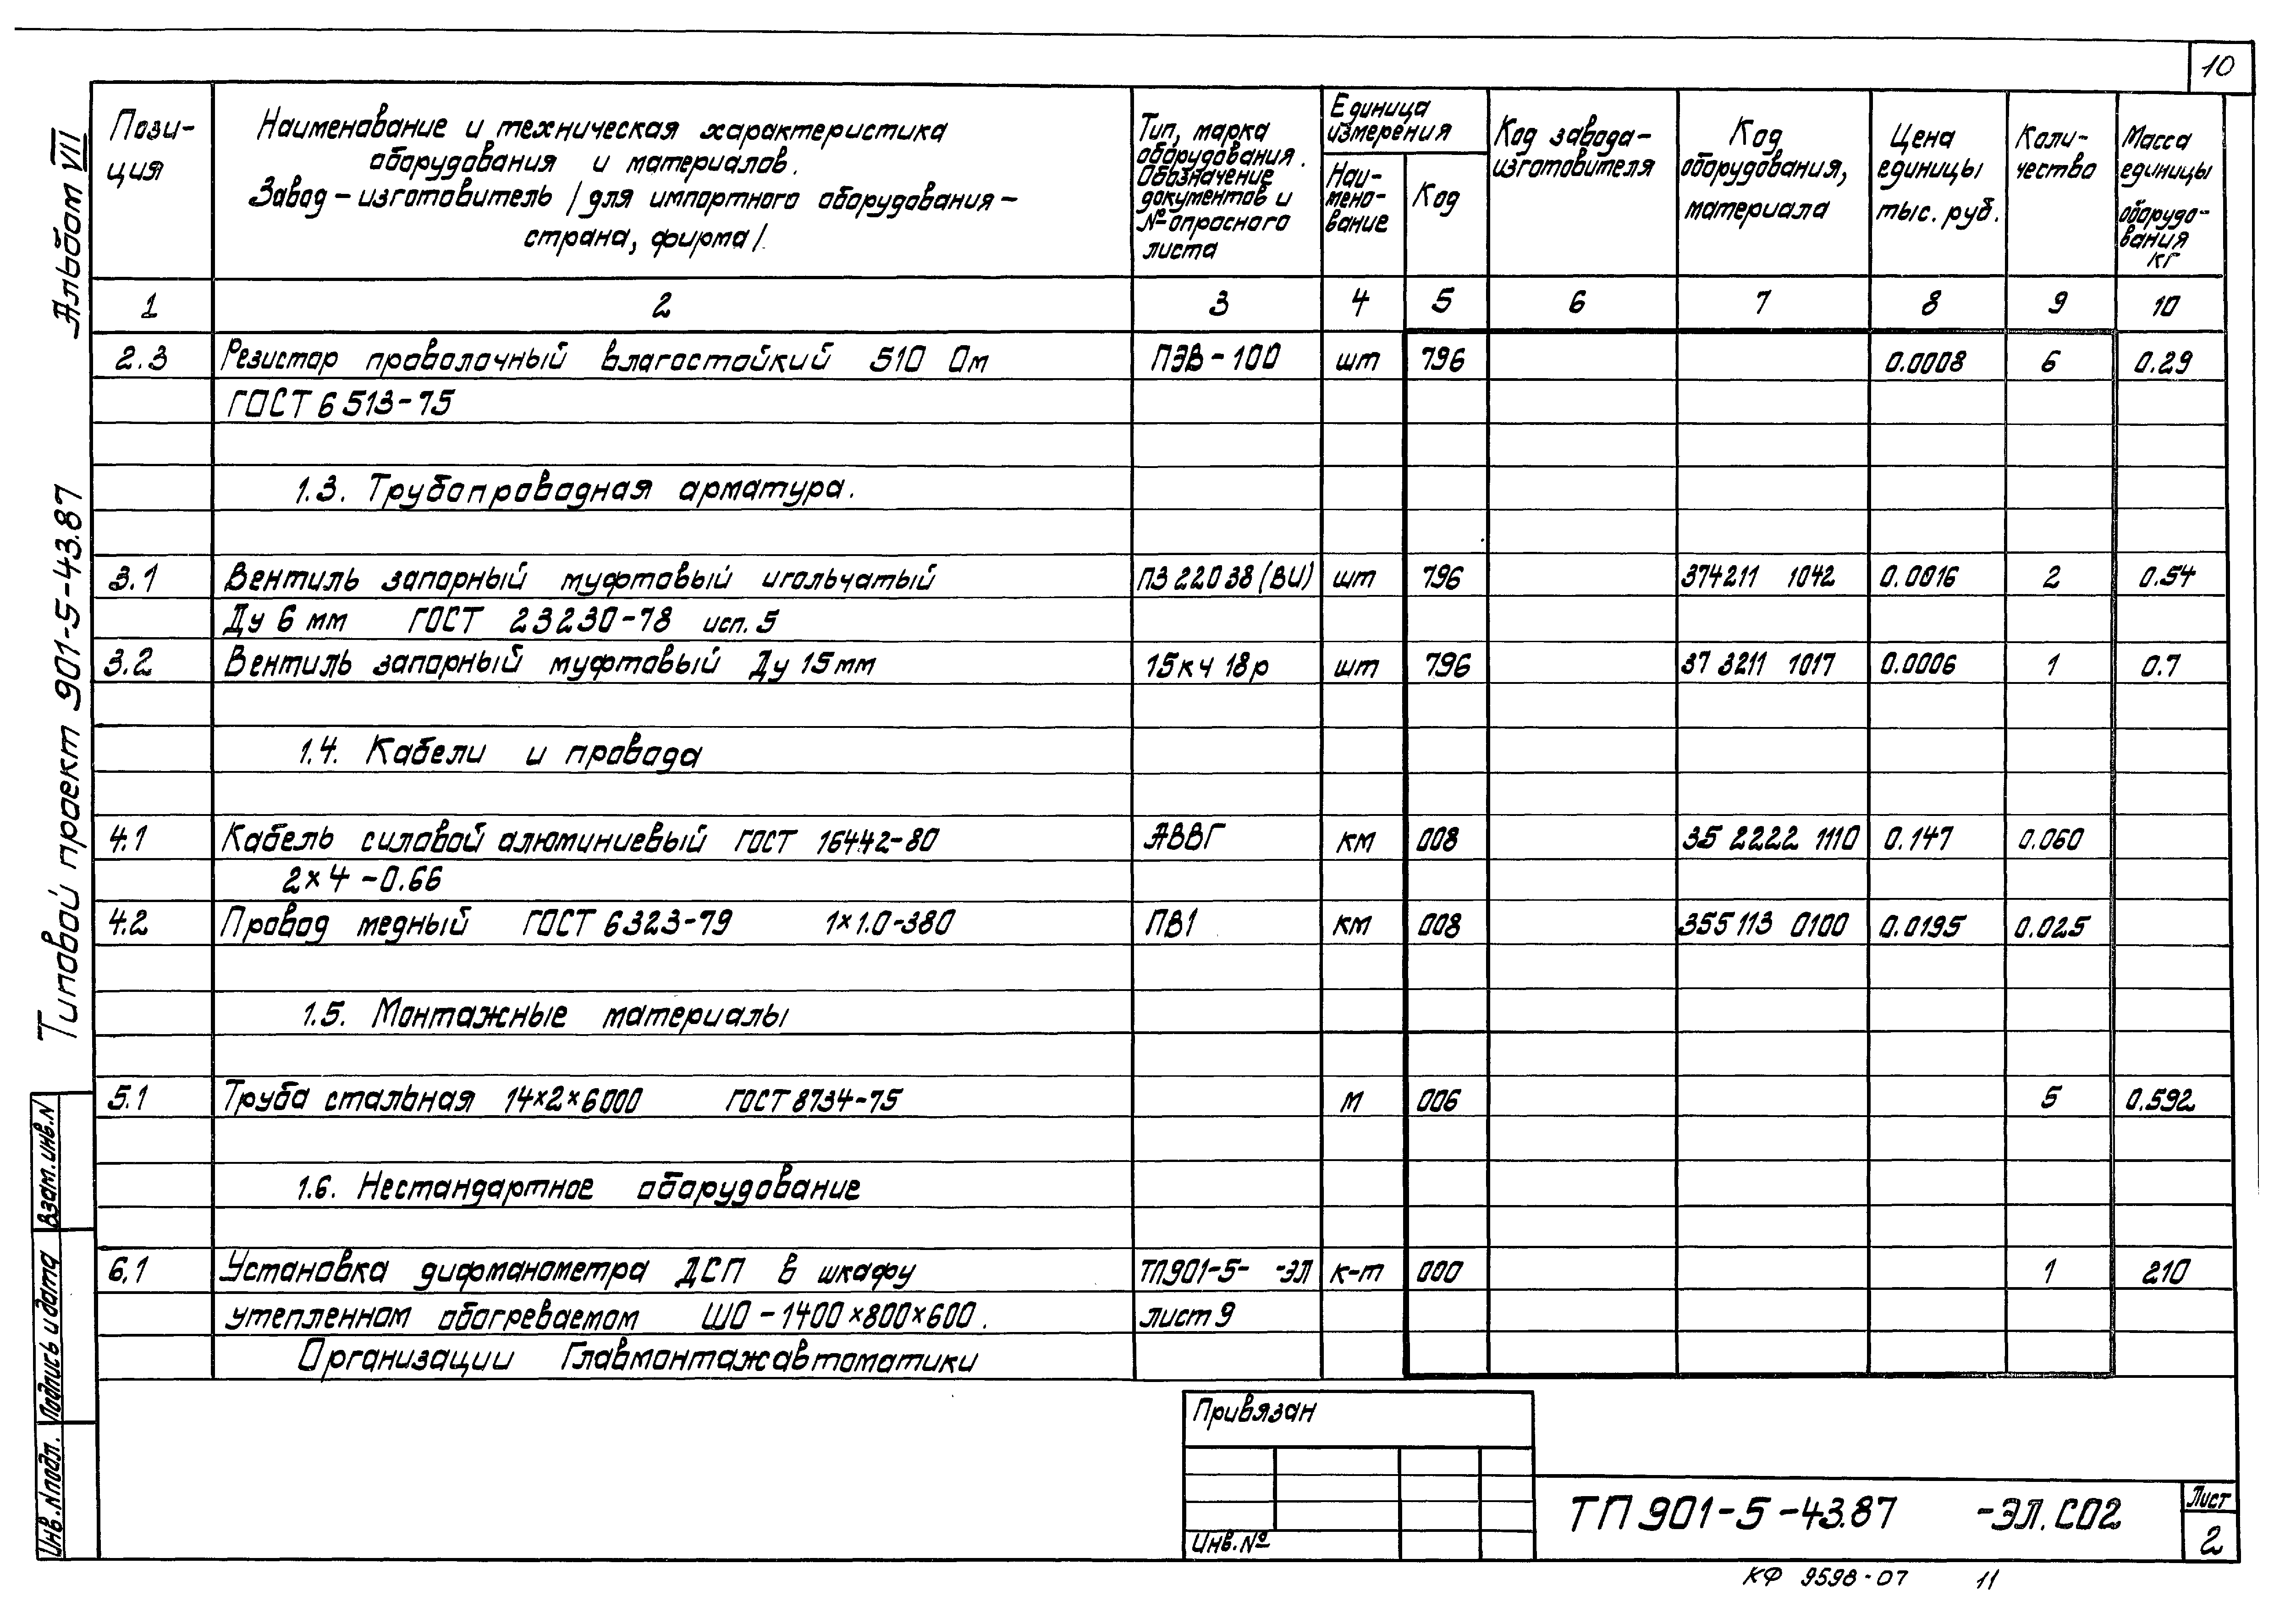 10
Альбом VII
Типовой проект 901-5-43.87
Пози-
ция
Наименование и техническая характеристика
оборудования и материалов.
Завод-изготовитель /для импортного оборудования-
страна, фирма/.
Тип, марка
оборудования.
Обозначение
документов и
№ опросного
листа
Единица
измерения
Наи-
мено-
вание
Код
Код завода-
изготовителя
Код
оборудования,
материала
Цена
единицы
тыс. руб.
Коли-
чество
Масса
единицы
оборудо-
вания
кг
1 2 3 4 5 6 7 8 9 10
2.3 Резистор проволочный влагостойкий 510 Ом ПЭВ-100 шт 796 0.0008 6 0.29
ГОСТ 6513-75
1.3. Трубопроводная арматура.
3.1 Вентиль запорный муфтовый игольчатый ПЗ 22038 (ВИ) шт 796 374211 1042 0.0016 2 0.54
Ду 6 мм ГОСТ 23230-78 исп. 5
3.2 Вентиль запорный муфтовый Ду 15мм 15кч 18р шт 796 37 3211 1017 0.0006 1 0.7
1.4. Кабели и провода
4.1 Кабель силовой алюминиевый ГОСТ 16442-80 АВВГ км 008 35 2222 1110 0.147 0.060
2×4-0.66
4.2 Провод медный ГОСТ 6323-79 1×1.0-380 ПВ1 км 008 355113 0100 0.0195 0.025
1.5. Монтажные материалы
5.1 Труба стальная 14×2×6000 ГОСТ 8734-75 м 006 5 0.592
1.6. Нестандартное оборудование
6.1 Установка дифманометра ДСП в шкафу ТП901-5- -ЭЛ к-т 000 1 210
утепленном обогреваемом ШО-1400×800×600. лист 9
Организации Главмонтажавтоматики
Взам.инв.N
Подпись и дата
Инв.N подл.
Привязан
Инв.№
ТП 901-5-43.87 -ЭЛ.СО2
Лист
2
КФ 9598-07 11